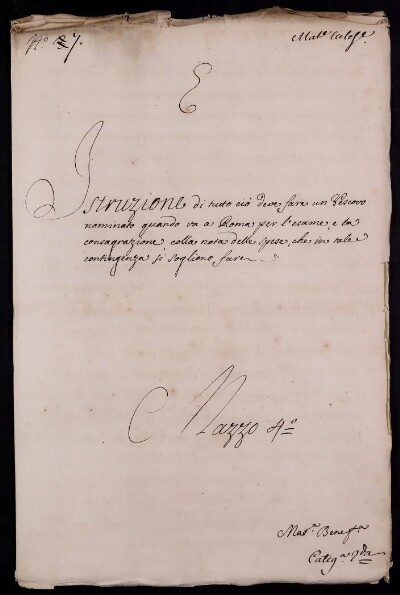 N.º 7.
E
Istruzione di tutto ciò deve fare un Vescovo
nominato quando va a Roma per l'esame, e la
consagrazione colla nota delle spese, che in tale
contingenza si sogliono fare
Mazzo 4º
Mat.ª Benef.ª
Categ.ª